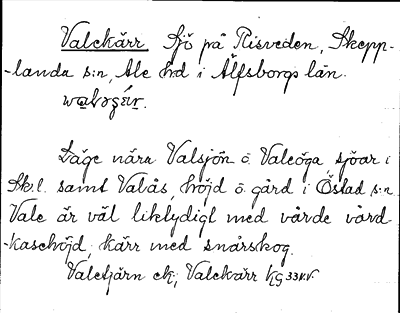 Valekärr. Sjö på Risveden, Skepp-
-landa s:n, Ale hrd i Älfsborgs län.
Läge nära Valsjön o. Valeöga sjöar i
Sk.l. samt Valås, höjd o. gård i Östad s:n.
Vale är väl liktydigt med vårde vård-
-kasehöjd; kärr med snårskog.
Valetjärn ek; Valekärr KG 33 N.V.